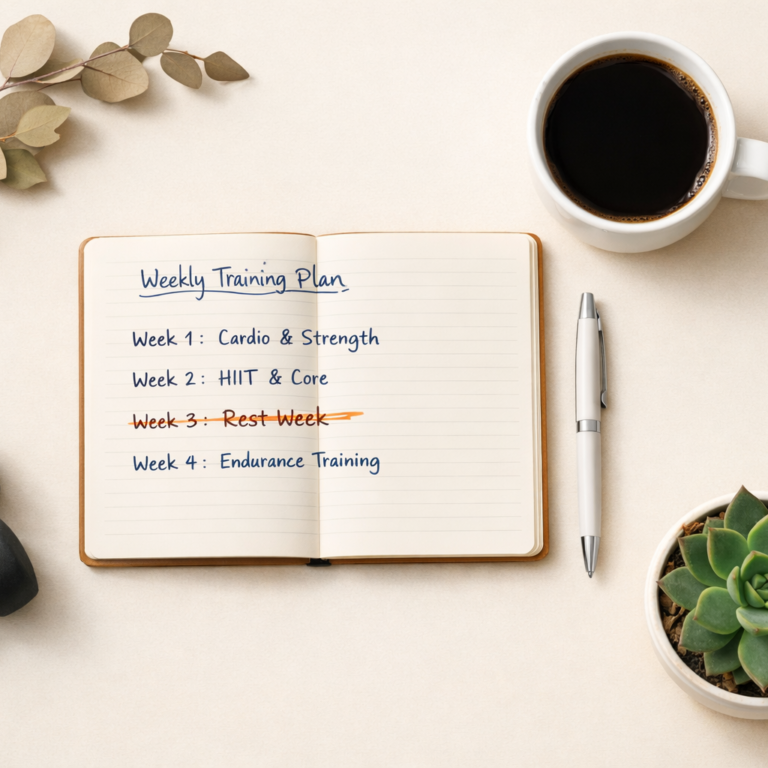 Weekly Training Plan
Week 1: Cardio & Strength
Week 2: HIIT & Core
Week 3: Rest Week
Week 4: Endurance Training